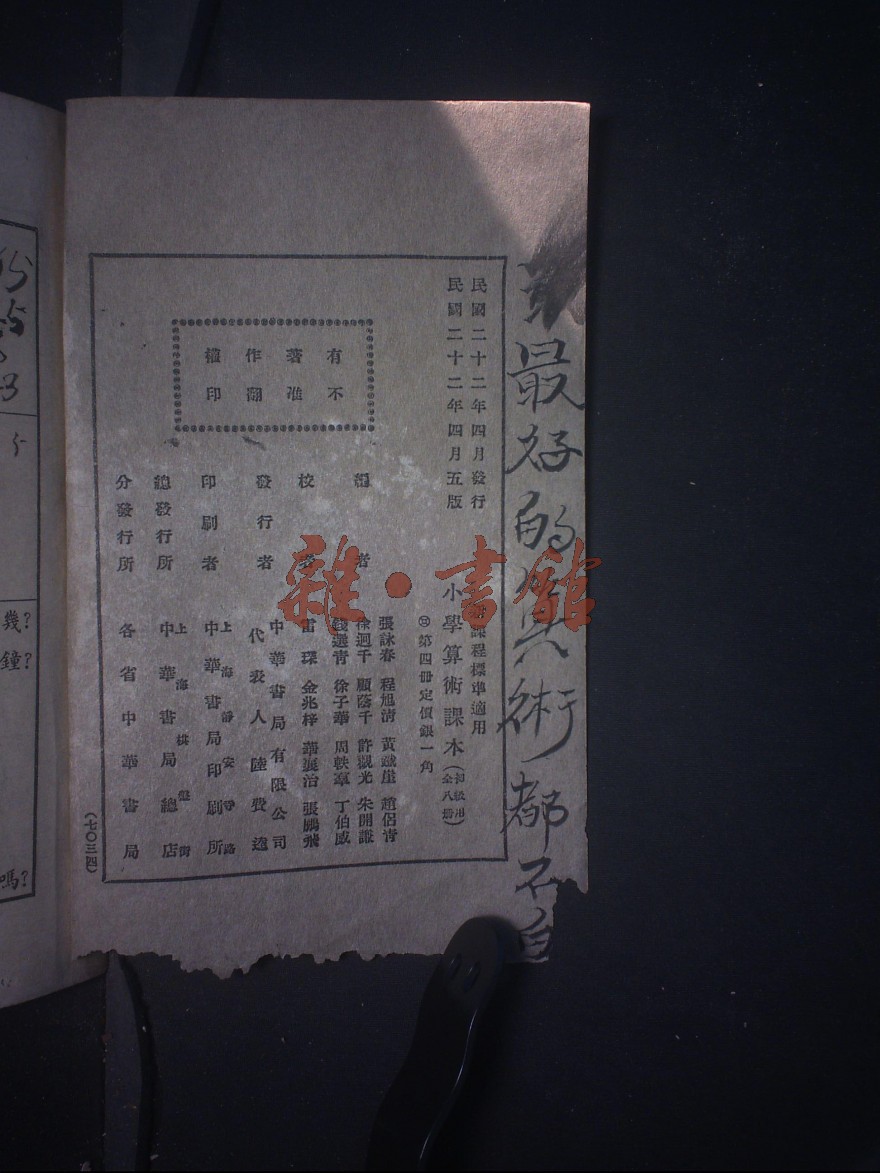 最好的算術都不
民國二十二年四月發行
民國二十二年四月五版
課程標準適用
小學算術課本(初級用全八冊)
第四冊定價銀一角
有著作權
不准翻印
編者
張詠春 程旭清 趙侶青
徐迥千 顧蔭千 許觀光 朱開謙
錢選青 徐子華 周軼羣 丁伯威
校者
雷琛 金兆梓 華襄治 張鵬飛
發行者
中華書局有限公司
代表人陸費逵
印刷者
上海靜安寺路
中華書局印刷所
總發行所
上海棋盤街
中華書局總店
分發行所
各省中華書局
(七〇三四)
幾?
鐘?
嗎?
雜·書館